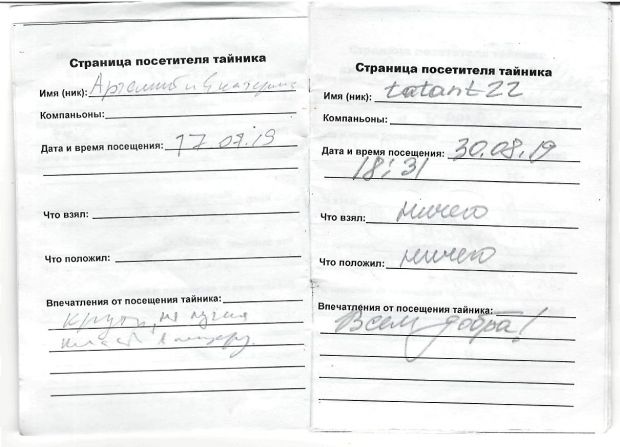 Страница посетителя тайника
Имя (ник): Артемий и Екатерина
Компаньоны:
Дата и время посещения: 17.07.19
Что взял:
Что положил:
Впечатления от посещения тайника:
Круто,
Страница посетителя тайника
Имя (ник): tatant22
Компаньоны:
Дата и время посещения: 30.08.19
18:31
Что взял: ничего
Что положил: ничего
Впечатления от посещения тайника:
Всем добра!